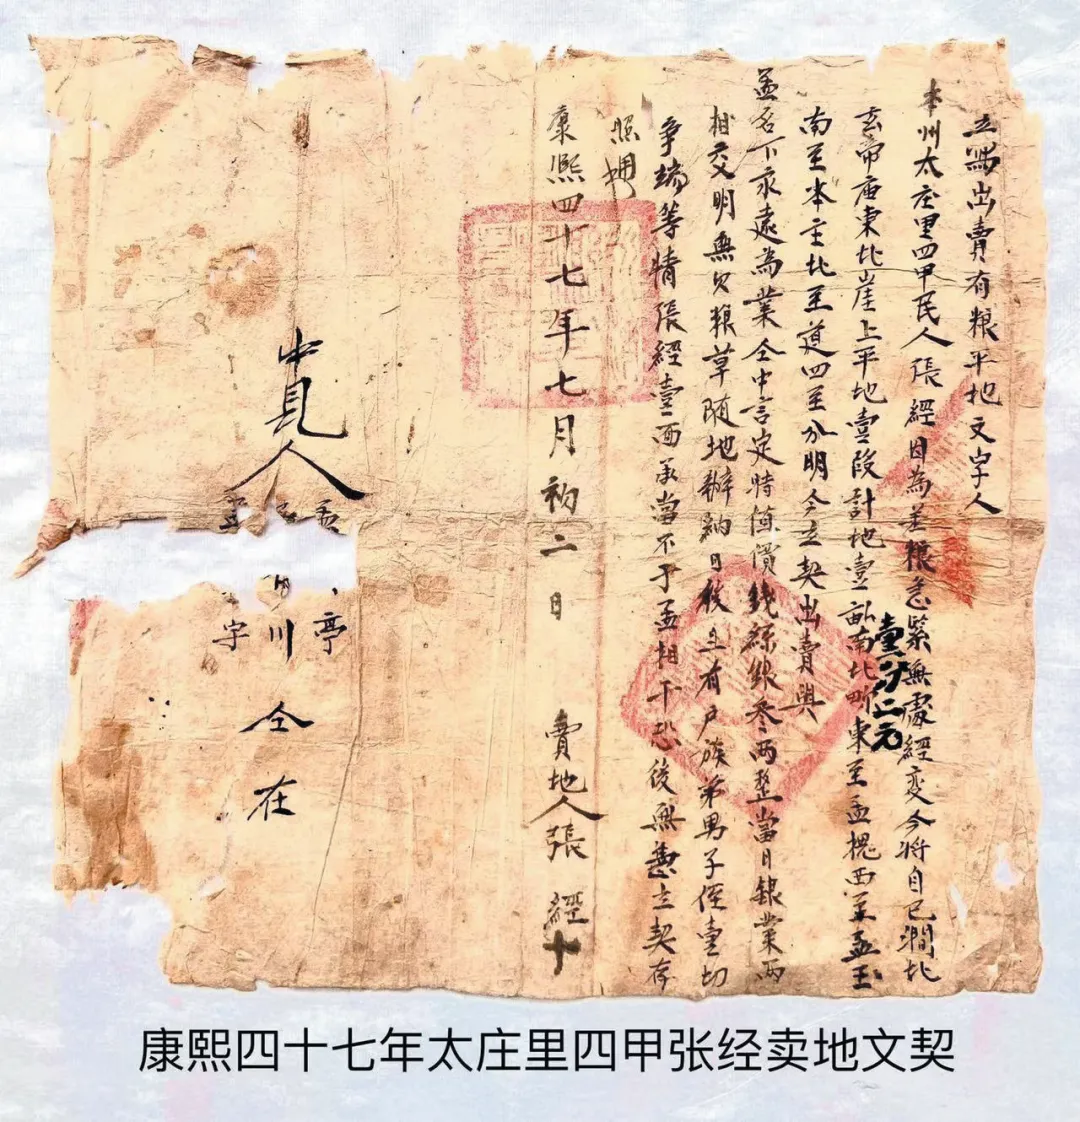 立寫出賣有粮平地文字人
本州太庄里四甲民人張經因為差粮急緊無處經変今將自己澗北
玄帝庙東北崖上平地壹段計地壹畝南北畛東至孟槐西至孟玉
壹分二元
南至本主北至道四至分明今立契出賣與
孟名下永遠為業仝中言定時值價錢銀叁两整當日銀業两
相交明無欠粮草随地辦納日後有户族弟男子侄壹切
争端等情張經壹面承當不于孟相干恐後無憑立契存
照用
康熙四十七年七月初二日
賣地人張經十
中見人
孟 亭
川 仝在
字
康熙四十七年太庄里四甲张经卖地文契